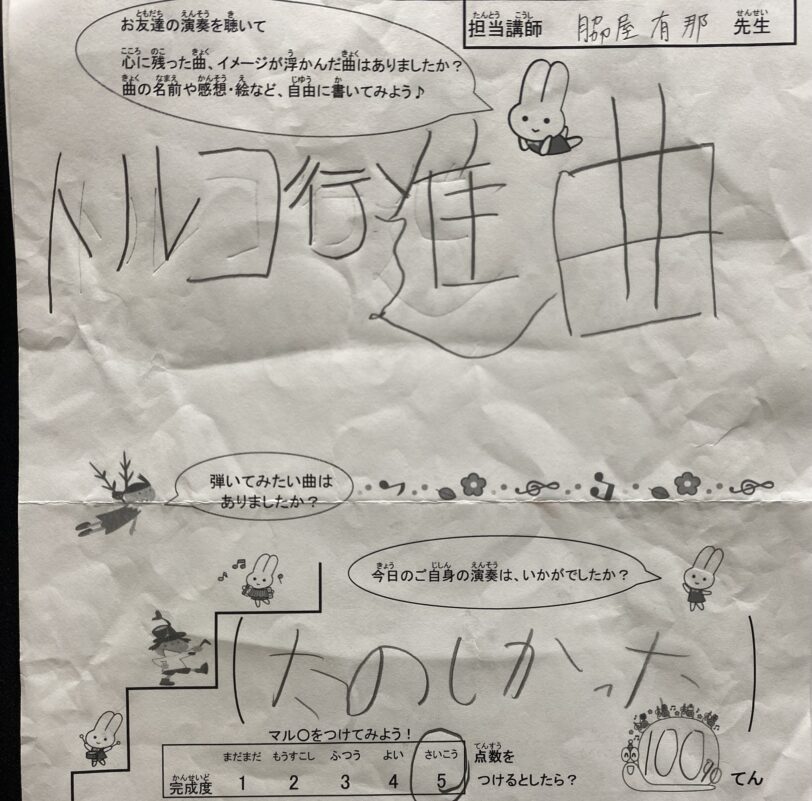 お友達の演奏を聴いて
心に残った曲、イメージが浮かんだ曲はありましたか？
曲の名前や感想・絵など、自由に書いてみよう♪
担当講師 脇屋有那 先生
トルコ行進曲
弾いてみたい曲は
ありましたか？
今日のご自身の演奏は、いかがでしたか？
(たのしかった)
マル〇をつけてみよう！
まだまだ もうすこし ふつう よい さいこう
完成度 1 2 3 4 5
点数を
つけるとしたら？
100% てん